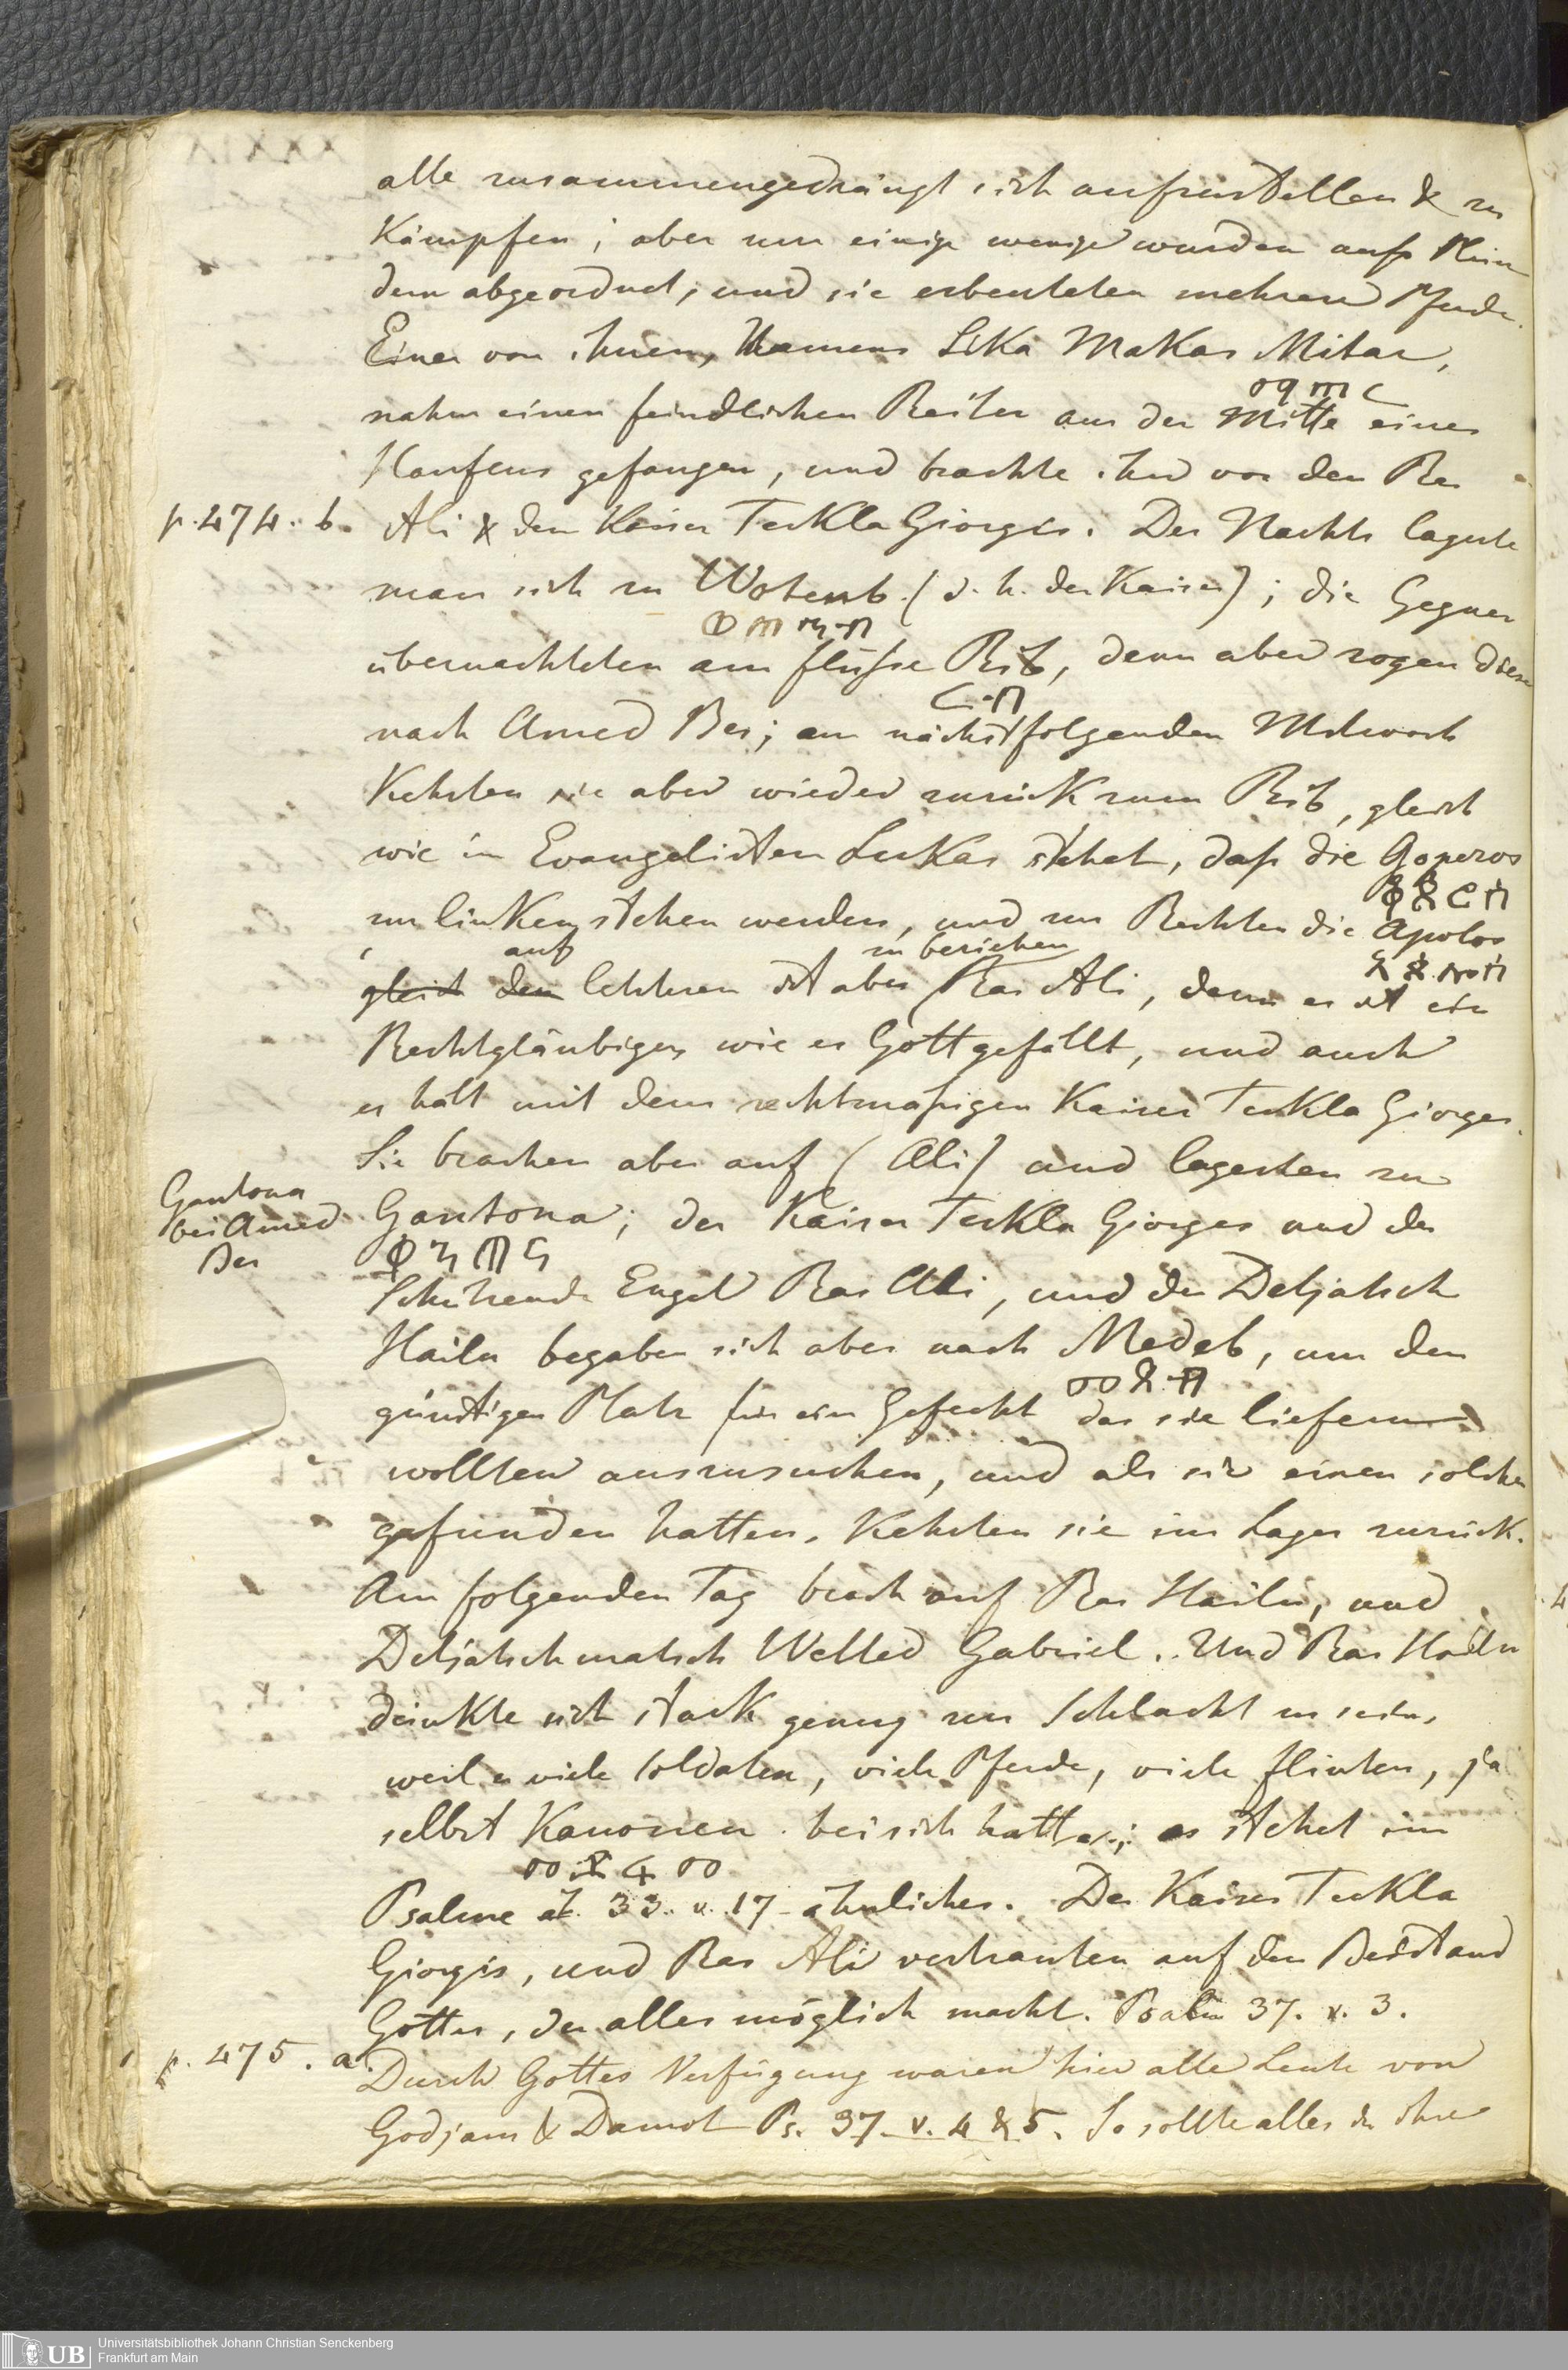 alle zusammengedrängt sich aufzustellen & zu
Kämpfen; aber nur einige wenige wurden aufs Plün
dern abgeordnet, und sie erbeuteten mehrere Pferde.
Einer von ihnen, Namens Lika Makas Mitar,
ማጠር
nahm einen feindlichen Reiter aus der Mitte eines
Haufens gefangen, und brachte ihn vor den Ras
p. 474. b. Ali & den Kaiser Tekla Giorgis. Des Nachts lagerte
man sich zu Wotenb. (d. h. der Kaiser); die Gegner
ወጠንብ
übernachteten am flusse Rib, denn aber zogen diese
ርብ
nach Amed Ber; am nächstfolgenden Mitwoch
Kehrten sie aber wieder zurück zum Rib, gleich
wie im Evangelisten Lukas stehet, daß die Goperos
zur linken stehen werden, und zur Rechten die Apolos
auf zu beziehen
gleich den letzteren ist aber Ras Ali, denn er ist ein
Rechtgläubiger, wie es Gott gefällt, und auch
er hält mit dem rechtmäßigen Kaiser Tekla Giorges.
Sie brachen aber auf (Ali) und lagerten zu
Gantona bei Amed Ber
Gantona; der Kaiser Tekla Giorges und der
ቀንጦና
Schützende Engel Ras Ali, und der Detjatsch
Hailu begaben sich aber nach Medeb, um den
መደብ
günstigen Platz für ein Gefecht das sie liefern
wollten auszusuchen, und als sie einen solchen
gefunden hatten, Kehrten sie ins Lager zurück.
Am folgenden Tag brach auf Ras Hailu, und
Detjatschmatsch Welled Gabriel. Und Ras Hailu
dünkte sich stark genug zur Schlacht zu sein,
weil er viele Soldaten, viele Pferde, viele flinten, ja
selbst Kanonen bei sich hatte; es stehet im
መድፍ
Psalme 33. v. 17 ähnliches. Der Kaiser Tekla
Giorgis, und Ras Ali vertrauten auf den Beistand
Gottes, der alles möglich macht. Psalm 37. v. 3.
p. 475. a. Durch Gottes Verfügung waren hier alle Leute von
Godjam & Damot Ps. 37. v. 4 & 5. So sollte alles ihre
Universitätsbibliothek Johann Christian Senckenberg
Frankfurt am Main